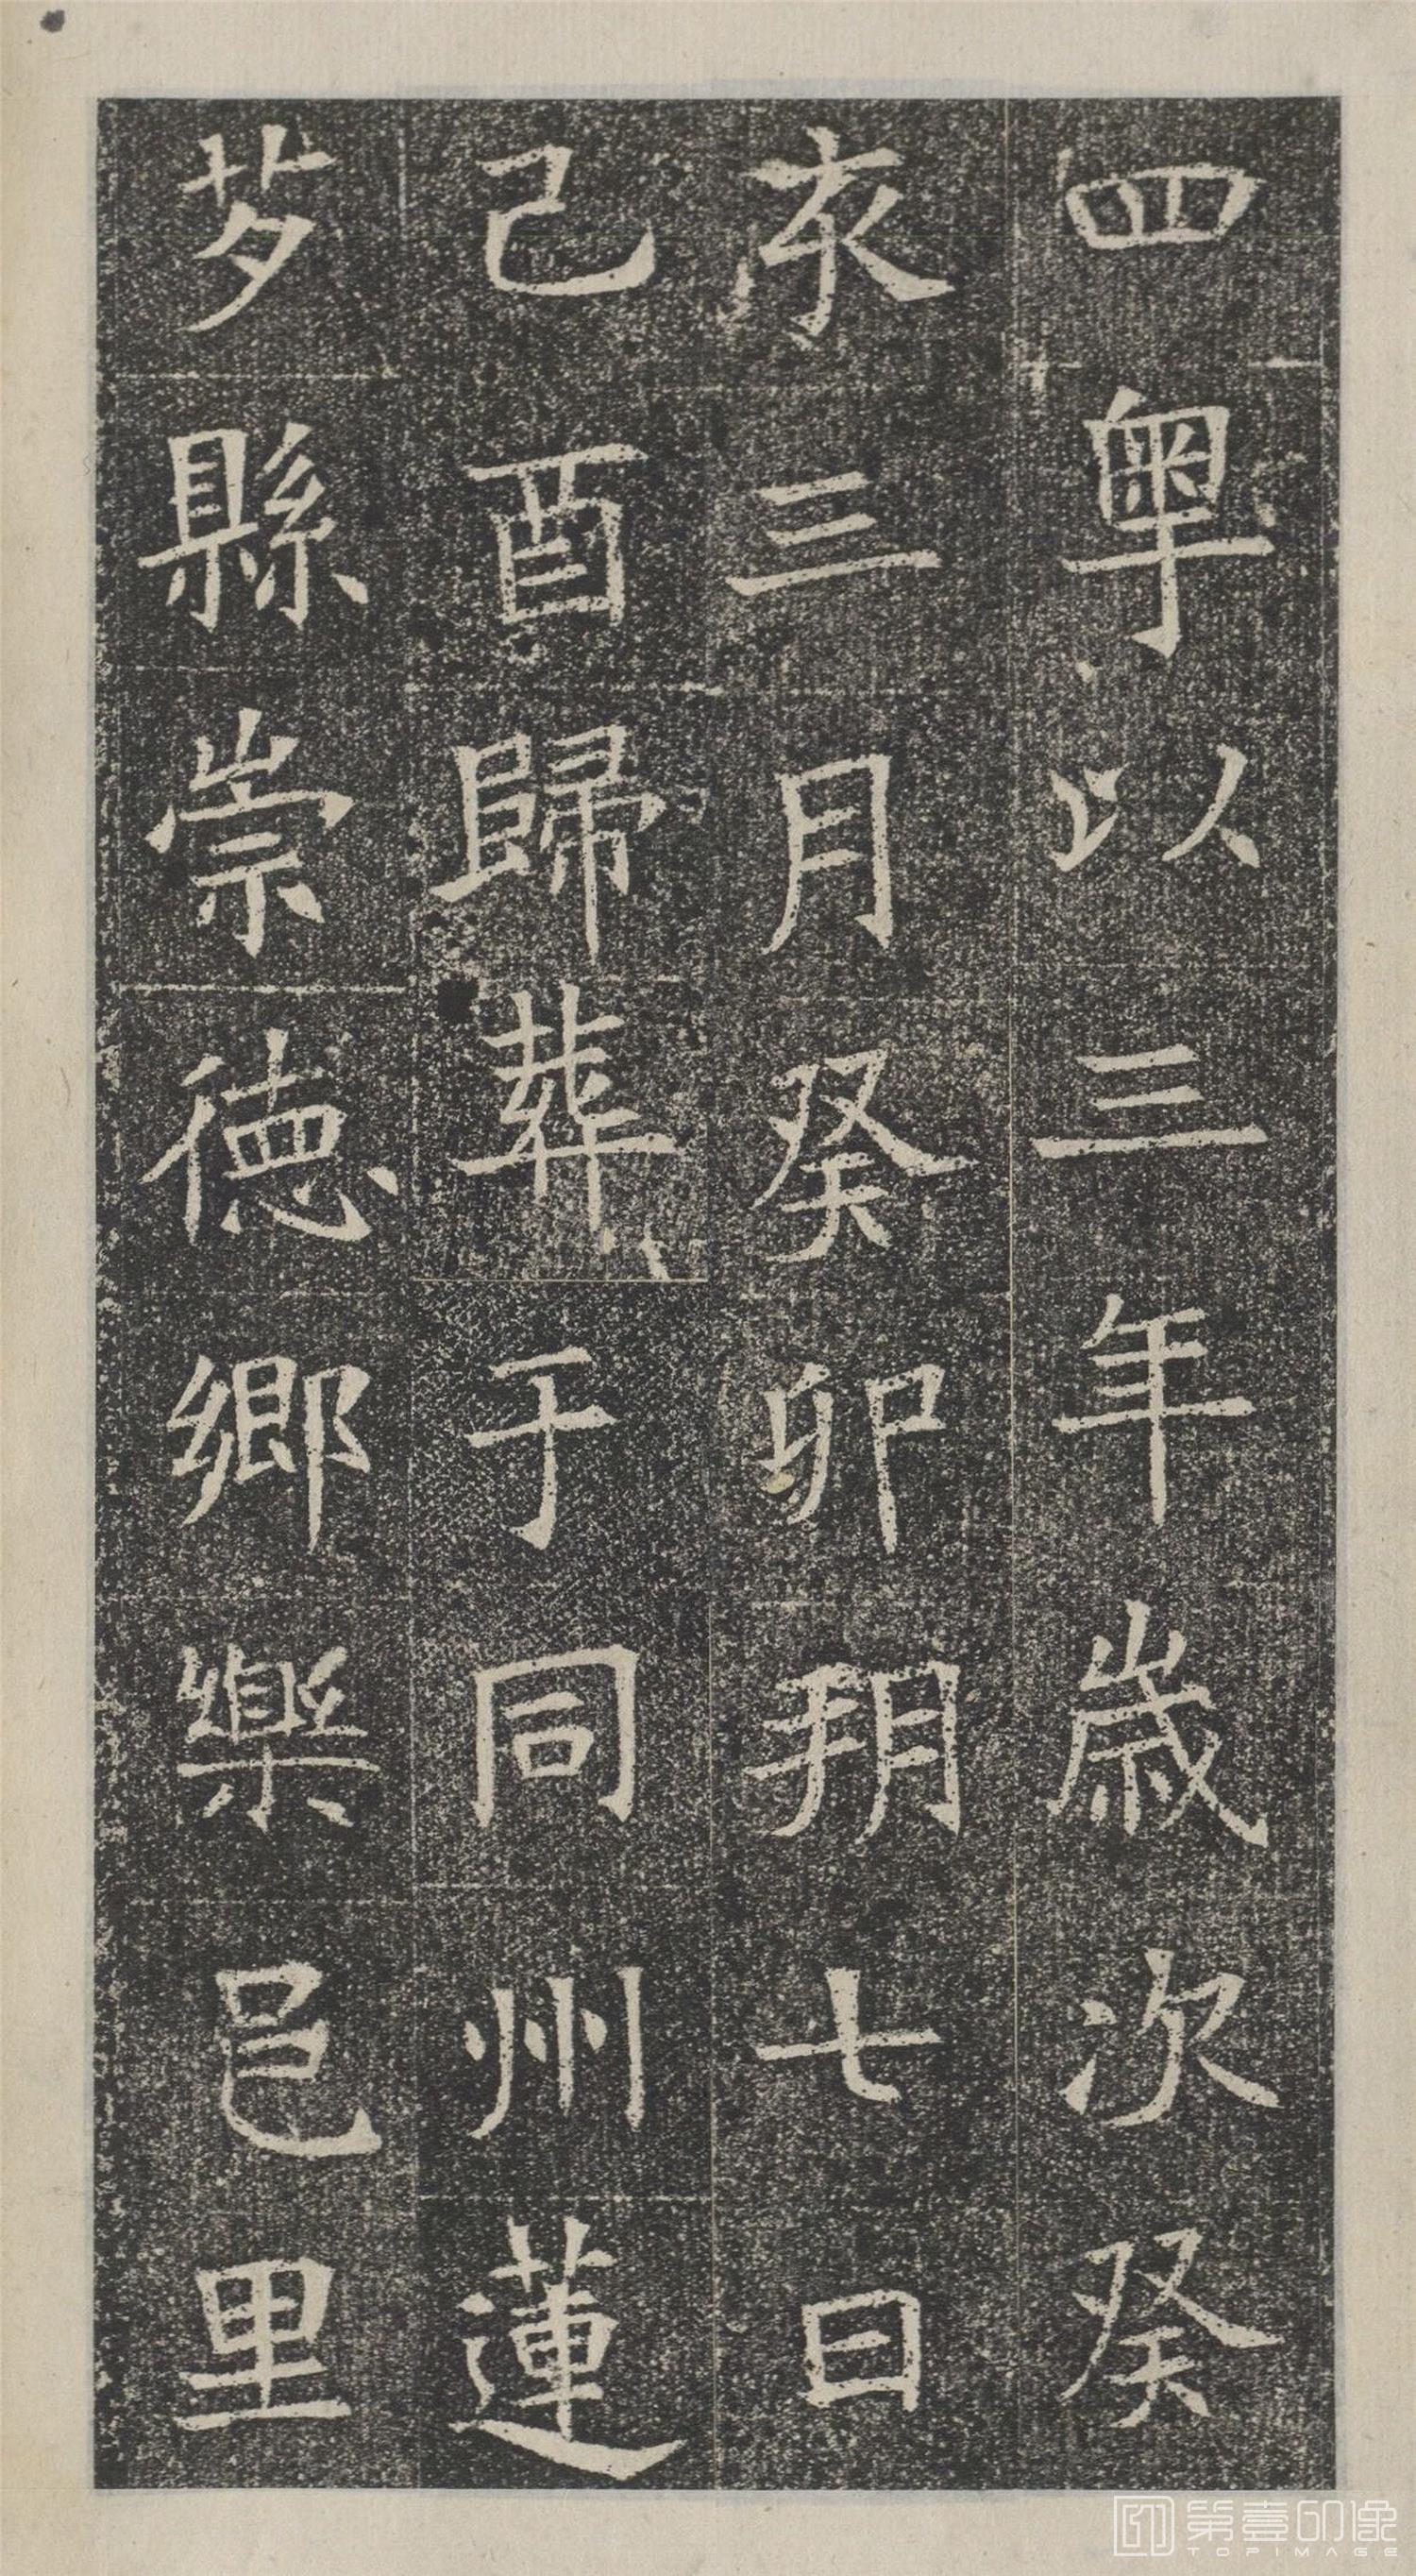 四粤以三年歲次癸
亥三月癸卯朔七日
己酉歸葬于同州蓮
芍縣崇德鄉樂邑里
第壹印像
TOPIMAGE